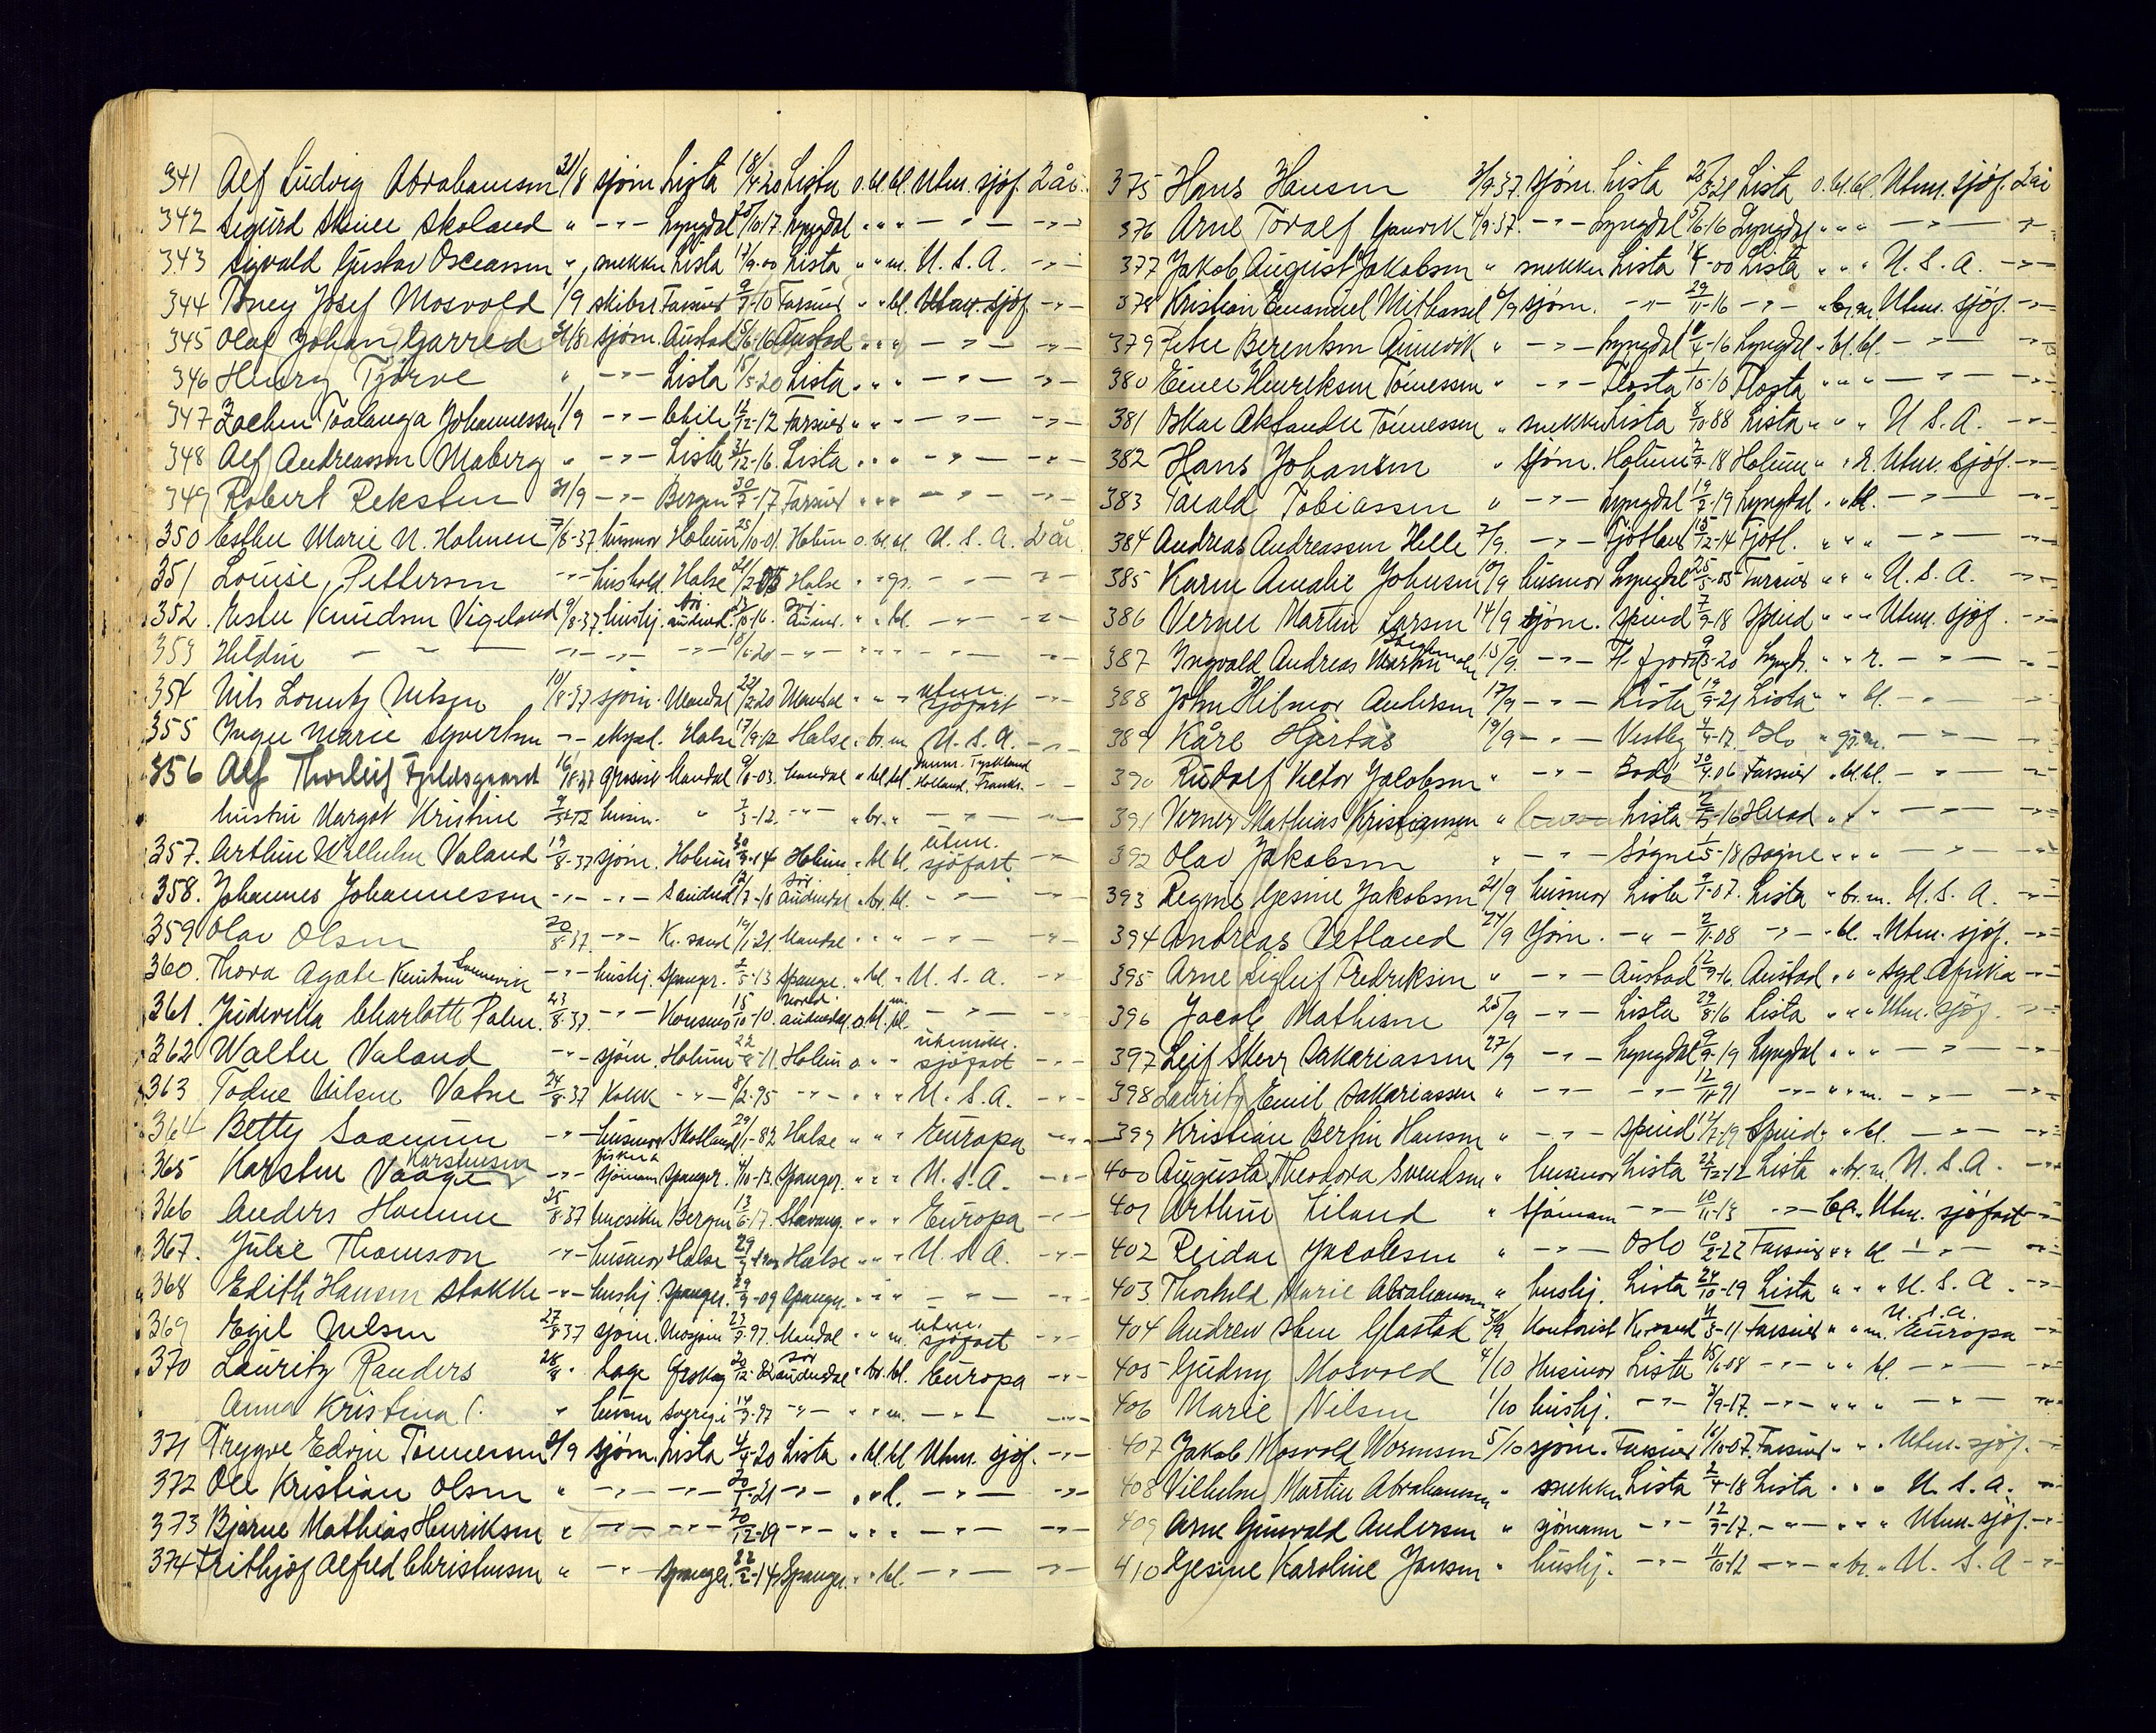 341 Alf Ludvig Abrahamsen 31/8 sjøm. Lista 18/4-20 Lista o. bl. bl. Utnr. sjøf. 2 år.
342 Sigurd Skoland " -"- Lyngdal 25/10-17. Lyngdal " " " -"- -"-
343 Sigvald Gustav Oscarssen ", snekker Lista 17/9-00 Lista " " m. U. S. A. -"-
344 Josef Mosvold 1/9 Farsund 9/7-10 Farsund " " bl. Utnr. sjøf. -"-
345 Olaf Johan Garred 31/8 sjøm. Austad 5/6-16 Austad " " " -"- -"-
346 Henry Tjørve " -"- Lista 18/5-20 Lista " " " -"- -"-
347 Johannessen 1/9 -"- Chile 12/2-12 Farsund " " " -"- -"-
348 Alf Andreassen Maberg " -"- Lista 31/12-16. Lista " " " -"- -"-
349 Robert Reksten 31/9 -"- Bergen 30/7-17 Farsund " " " -"- -"-
350 Esther Marie N. Holmen 7/8-37 husmor Holum 25/10-01. Holum o. bl. bl. U. S. A. 2 år
351 Louise Pettersen -"- hushold. Halse Halse " " gr. -"- -"-
352. Ester Knudsen Vigeland 9/8-37. hushj. sør. audned. sør. " " bl. -"- -"-
353 - - - -"- -"- -"- 18/1-20 -"- " " " -"- -"-
354 Nils Lorentz Nilsen 10/8-37 sjøm. Mandal 22/2-20 Mandal " " " utnr. sjøfart -"-
355 Inger Marie Syvertsen -"- eksped. Halse 17/9-12 Halse " br. m. U. S. A. -"-
356 Alf Thorleif Fjeldsgaard 16/8-37 grosist Mandal 9/6-03. Mandal " bl. bl. Danm. Tyskland Holland, Frankr. -"-
hustru Margot Kristine " 7/3-12. -"- " br. " -"- -"-
357. Arthur Wilhelm Valand 19/8-37 sjøm. Holum 30/9-14 Holum " bl. bl. utnr. sjøfart -"-
358. Johannes Johannessen -"- -"- S. audned 12/7-18 sør. audnedal " br. bl. -"- -"-
359 Olav Olsen 20/8-37. -"- Kr. sand 19/1-21. Mandal " " " -"- -"-
360. Thora Agate Knutsen Svennevik -"- hushj. Spanger. 2/5-13 Spanger. " bl. " U. S. A. -"-
361. Charlotte Palm. 23/8-37. -"- Konsmo 15/10-10. nord. audnedal o. bl. bl. m. -"- -"-
362 Walter Valand -"- sjøm. Holum 22/8-11. Holum o. " " utenriks. sjøfart -"-
363 Todne Nilsen Vatne 24/8-37 Kokk -"- 8/2-95 -"- " " " U. S. A. -"-
364 Betty Saanum -"- husmor Skotland 29/1-82 Halse " " " Europa -"-
365 Karsten Karstensen Vaage -"- fisker & sjømann Spanger. 4/10-13. Spanger. " " " U. S. A. -"-
366 Anders Homme 25/8-37 Bergen 13/6-17. Stavang. " " " Europa -"-
367. Julie Thomson -"- husmor Halse Halse " " " U. S. A. -"-
368 Edith Hansen Stokke -"- hushj. Spanger. 29/9-09 Spanger. " " " -"- -"-
369 Egil Nilsen 27/8-37 sjøm. Mosjøen 23/7-97. Mandal " " m. utnr. sjøfart -"-
370 Lauritz Randers 28/8 " 20/12-82 sør audnedal " br. bl. Europa -"-
Anna Kristina " husm Sverige 14/3-97 -"- " " m. -"- -"-
371 Trygve Edvin Tønnessen 2/9 sjøm. Lista 4/4-20 Lista " bl. bl. Utnr. sjøf. -"-
372 Ole Kristian Olsen " -"- -"- 20/1-21 -"- " " l. -"- -"-
373 Bjarne Mathias Henriksen " -"- -"- 20/12-19 -"- " " " -"- -"-
374 Frithjof Alfred Christensen " -"- Spanger. 22/2-14 Spanger. " " bl. -"- -"-
375 Hans Hansen 3/9-37. sjøm. Lista 25/3-21 Lista o. bl. bl. Utnr. sjøf. 2 år
376 Arne Toralf 4/9-37. -"- Lyngdal 5/6-16 Lyngdal " " " -"- -"-
377 Jakob August Jakobsen " snekker Lista 14/4-00 Lista " " " U. S. A. -"-
378 Kristian Emanuel Mithassel 6/9 sjøm. -"- 29/11-16 -"- " br. m. Utnr. sjøf. -"-
379 Peter Berentsen " -"- Lyngdal 4/4-16 Lyngdal " bl. bl. -"- -"-
380 Einer Henriksen Tønnessen " -"- Flosta 1/10-10 Flosta " " " -"- -"-
381 Oskar Aleksander Tønnessen " snekker Lista 8/10-88 Lista " " " U. S. A. -"-
382 Hans Johansen " sjøm. Holum 2/9-18 Holum " " r. Utnr. sjøf. -"-
383 Tarald Tobiassen " -"- Lyngdal 19/2-19 Lyngdal " " bl. -"- -"-
384 Andreas Andreassen Helle 7/9. -"- Fjotland 15/12-14 Fjotl. " " " -"- -"-
385 Karen Amalie Johnsen 10/9 husmor Lyngdal 25/5-05 Farsund " " " U. S. A. -"-
386 Verner Martin Larsen 14/9 sjøm. Spind 7/9-18 Spind " " " Utnr. sjøf. -"-
387 Ingvald Andreas 15/9. -"- Fl. fjord 9/3-20 Lyngd. " " r. -"- -"-
388 John Hilmar Andersen 17/9 -"- Lista 19/9-21 Lista " " bl. -"- -"-
389 Kåre Hjertås 19/9 -"- Vestby 4/4-12. Oslo " gr. m. -"- -"-
390 Rudolf Victor Jacobsen " -"- Bodø 30/9-06 Farsund " bl. bl. -"- -"-
391 Verner Mathias Kristiansen " Lista 2/5-16 Herad " " " -"- -"-
392 Olav Jakobsen " -"- Søgne 1/5-18 Søgne " " " -"- -"-
393 Regine Gesine Jakobsen 21/9 husmor Lista 9/1-07. Lista " br. m. U. S. A. -"-
394 Andreas Vetland 24/9 sjøm. -"- 2/11-08 -"- " bl. " Utnr. sjøf. -"-
395 Arne Sigleif Fredriksen " -"- Austad 12/9-16. Austad " " " Syd Afrika -"-
396 Jacob Mathisen 25/9 -"- Lista 29/8-16 Lista " " " Utnr. sjøf. -"-
397 Leif Sakariassen 27/9 -"- Lyngdal 9/9-19 Lyngdal " " " -"- -"-
398 Lauritz Emil Sakariassen " -"- -"- 12/11-91 -"- " " m. -"- -"-
399 Kristian Berlin Hansen " -"- Spind 12/7-19 Spind " bl. -"- -"-
400 Augusta Theodora Svendsen " husmor Lista 22/12-12 Lista " br. m. U. S. A. -"-
401 Arthur Liland " sjømann -"- 10/11-13 -"- Utnr. sjøfart -"-
402 Reidar Jacobsen " -"- Oslo 10/2-22 Farsund " " bl. -"- -"-
403. Thorhild Marie Abrahamsen " hushj. Lista 24/10-19 Lista " " " U. S. A. -"-
404 Andrew Sten Glastad 30/9 Kontorist Kr.sand 4/5-11 Farsund " " m. U. S. A. Europa -"-
405 Gudny Mosvold 4/10 Husmor Lista 18/6-08 -"- " " bl. -"- -"-
406 Marie Nilsen 1/10 hushj. -"- 3/9-17. -"- " " " -"- -"-
407 Jakob Mosvold Wormsen 5/10 sjøm. Farsund 16/10-07. Farsund " " " Utnr. sjøf. -"-
408 Vilhelm Martin Abrahamsen " snekker Lista 2/4-18 Lista " " " U. S. A. -"-
409 Arne Gunvald Andersen " sjømann -"- 12/9-17. -"- " " " Utnr. sjøf. -"-
410 Gesine Karoline Jansen " hushj. -"- 11/10-12 -"- " br. " U. S. A -"-